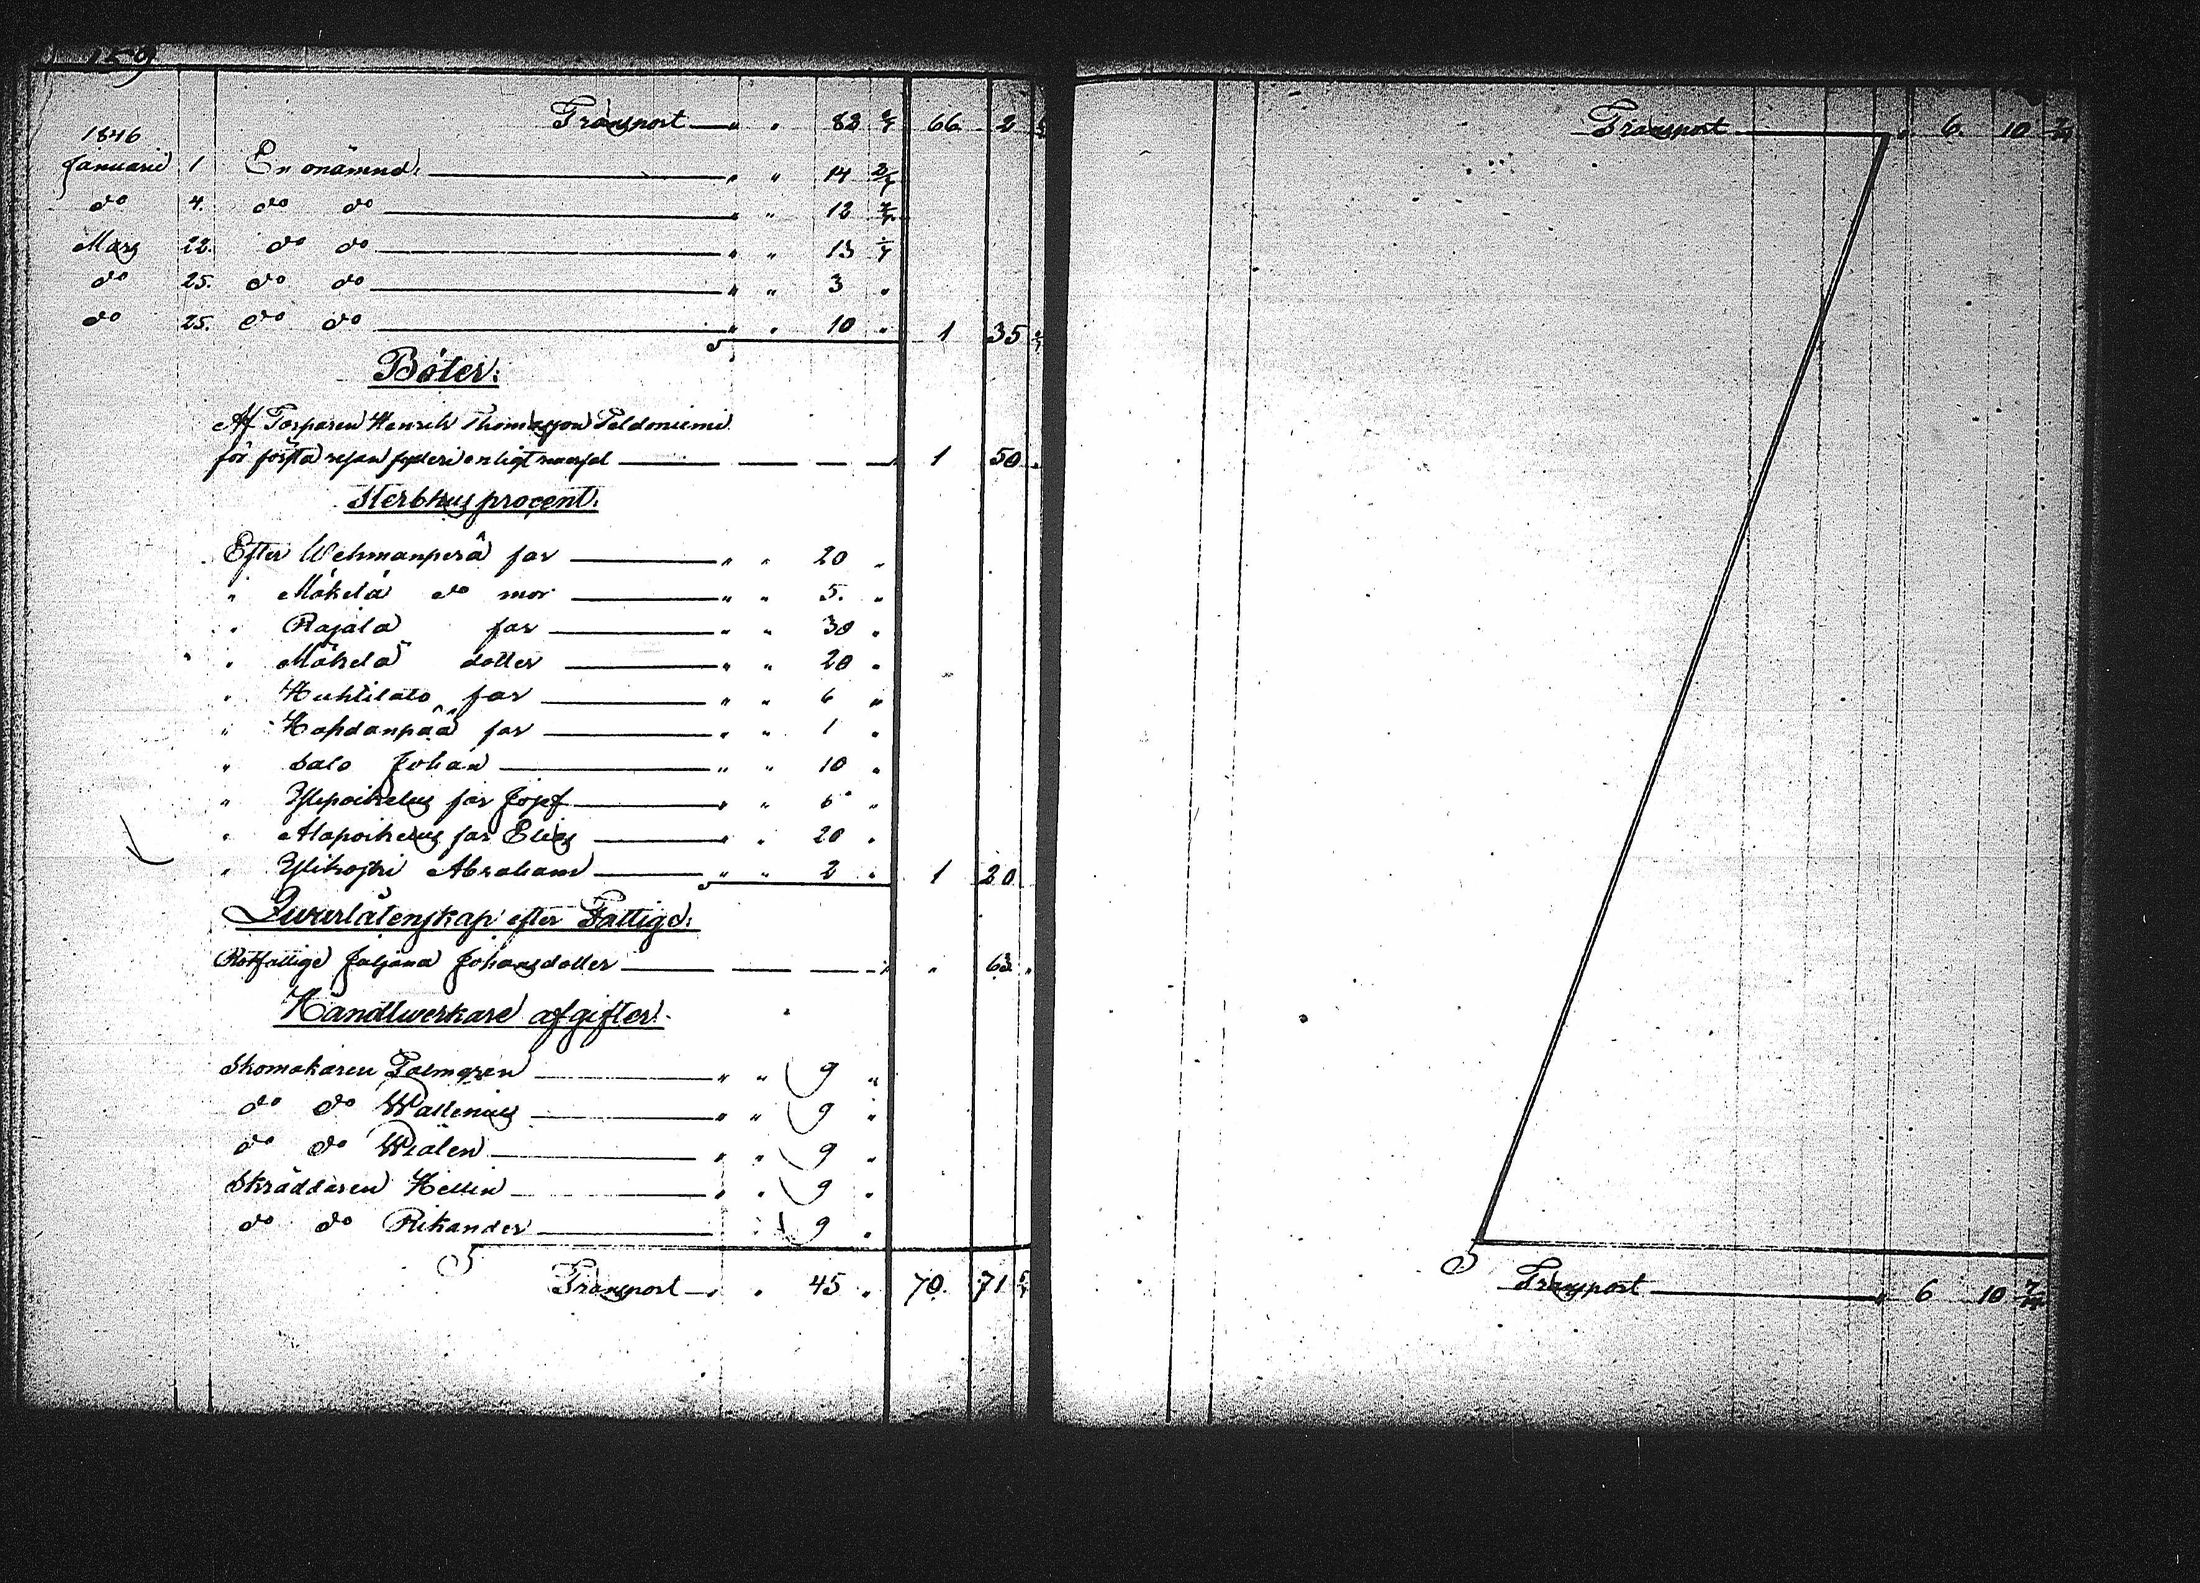 159
Transport — " " 82 2/7 66 2
1846
Januarii 1 En onämnd — " " 14 2/7
do 4. do do — " " 12
Mars 22. do do — " " 13
do 25. do do — " " 3 "
do 25. do do — " " 10 " 1 35
Böter:
Af Torparen Henrik Thomasson Taldoniemi
för första resan enligt — 1 50 "
Sterbhus procent:
Efter Wehmanperä far — " " 20 "
" Mäkelä do mor — " " 5. "
" Rajala far — " " 30 "
" Mäkelä dotter — " " 20 "
" Huhtilato far — " " 6 "
" Hahdanpää far — " " 1 "
" Salo Johan — " " 10 "
" Ylipoikelus far Josef — " " 6 "
" Alapoikelus far Elias — " " 20 "
" Ylikoski Abraham — " " 2 " 1 20
Qvarlåtenskap efter Fattige:
Rotfattige Johansdotter — " 63 "
Handtwerkare afgifter:
Skomakaren Palmgren — " " 9 "
do do Wallenius — " " 9 "
do do Widlen — " " 9 "
Skräddaren Hellin — " " 9 "
do do Rikander — " " 9 "
Transport — " " 45 " 70. 71
Transport — " 6. 10 7/14
Transport — " 6 10 7/14